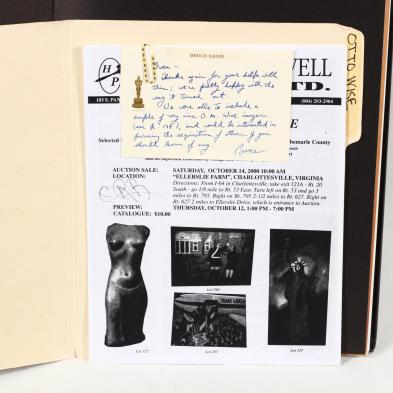 BRUCE DAVIS
Gwen –
Thanks again for your help with
this; we're pretty happy with the
way it turned out.
We were able to include a
couple of my nine O.M. Wise images
(see p. 149), and would be interested in
pursuing the acquisition of them if you
should learn of any
Bruce
OTTO WISE
H
P
WELL
LTD.
103 S. PAN
(804) 293-2904
E
Selected
Albemarle County
AUCTION SALE: SATURDAY, OCTOBER 14, 2000 10:00 AM
LOCATION: "ELLERSLIE FARM", CHARLOTTESVILLE, VIRGINIA
Directions: From I-64 in Charlottesville, take exit 121A - Rt. 20
South - go 1/8 mile to Rt. 53 East. Turn left on Rt. 53 and go 3
miles to Rt. 795. Right on Rt. 795 2 1/2 miles to Rt. 627. Right on
Rt. 627 2 miles to Ellerslie Drive, which is entrance to Auction.
PREVIEW: THURSDAY, OCTOBER 12, 1:00 PM - 7:00 PM
CATALOGUE: $10.00
Lot 325
Lot 293
Lot 337